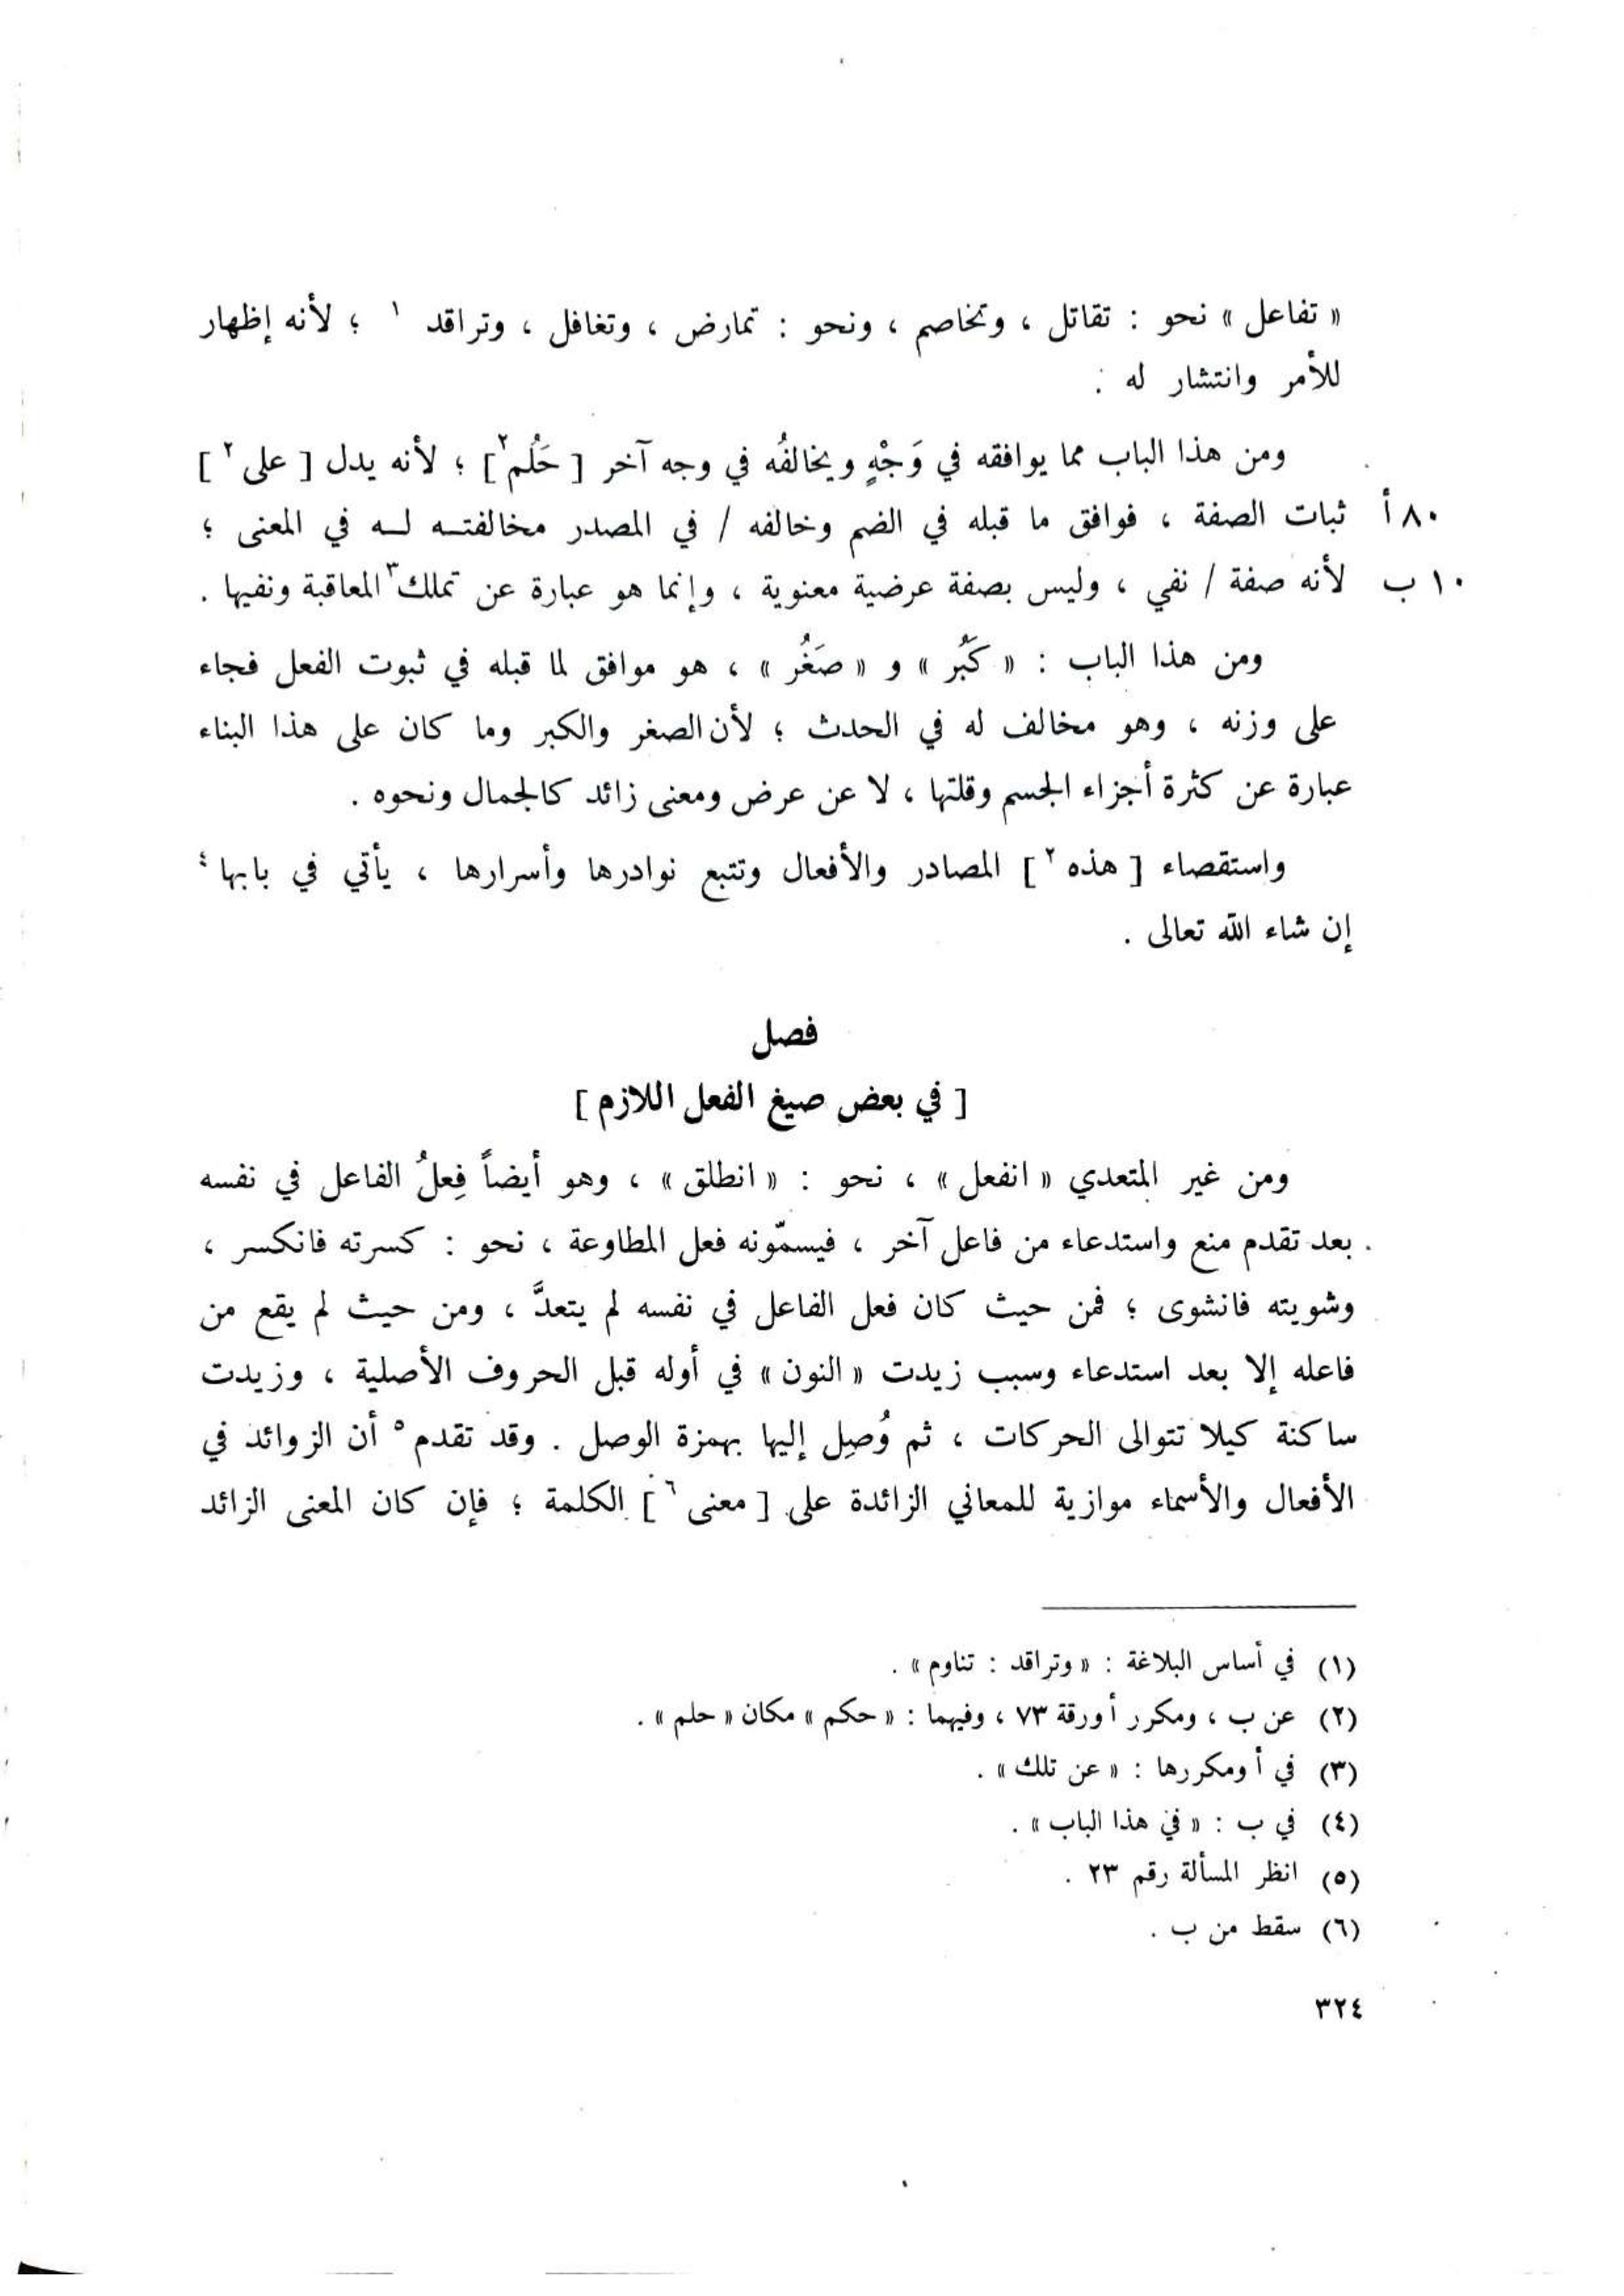 « تفاعل » نحو : تقاتل ، وتخاصم ، ونحو : تمارض ، وتغافل ، وتراقد ١ ؛ لأنه إظهار
للأمر وانتشار له .
ومن هذا الباب مما يوافقه في وَجْهٍ ويخالفُه في وجه آخر [ حَلُم٢ ] ؛ لأنه يدل [ على ٢ ]
٨٠ أ ثبات الصفة ، فوافق ما قبله في الضم وخالفه / في المصدر مخالفتــه لــه في المعنى ؛
١٠ ب لأنه صفة / نفي ، وليس بصفة عرضية معنوية ، وإنما هو عبارة عن تملك٣ المعاقبة ونفيها .
ومن هذا الباب : « كَبُر » و « صَغُر » ، هو موافق لما قبله في ثبوت الفعل فجاء
على وزنه ، وهو مخالف له في الحدث ؛ لأن الصغر والكبر وما كان على هذا البناء
عبارة عن كثرة أجزاء الجسم وقلتها ، لا عن عرض ومعنى زائد كالجمال ونحوه .
واستقصاء [ هذه ٢ ] المصادر والأفعال وتتبع نوادرها وأسرارها ، يأتي في بابها ٤
إن شاء الله تعالى .
فصل
[ في بعض صيغ الفعل اللازم ]
ومن غير المتعدي « انفعل » ، نحو : « انطلق » ، وهو أيضاً فِعلُ الفاعل في نفسه
بعد تقدم منع واستدعاء من فاعل آخر ، فيسمّونه فعل المطاوعة ، نحو : كسرته فانكسر ،
وشويته فانشوى ؛ فمن حيث كان فعل الفاعل في نفسه لم يتعدَّ ، ومن حيث لم يقع من
فاعله إلا بعد استدعاء وسبب زيدت « النون » في أوله قبل الحروف الأصلية ، وزيدت
ساكنة كيلا تتوالى الحركات ، ثم وُصِل إليها بهمزة الوصل . وقد تقدم ٥ أن الزوائد في
الأفعال والأسماء موازية للمعاني الزائدة على [ معنى ٦ ] الكلمة ؛ فإن كان المعنى الزائد
(١) في أساس البلاغة : « وتراقد : تناوم » .
(٢) عن ب ، ومكرر أ ورقة ٧٣ ، وفيهما : « حكم » مكان « حلم » .
(٣) في أ ومكررها : « عن تلك » .
(٤) في ب : « في هذا الباب » .
(٥) انظر المسألة رقم ٢٣ .
(٦) سقط من ب .
٣٢٤